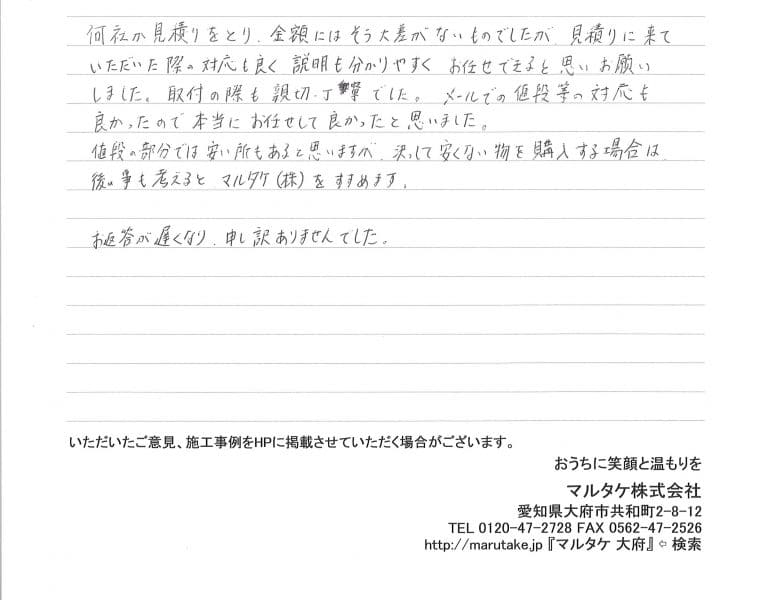 何社か見積りをとり、金額にはそう大差がないものでしたが、見積りに来て
いただいた際の対応も良く 説明も分かりやすく お任せできると思いお願い
しました。取付の際も親切・丁寧でした。メールでの値段等の対応も
良かったので本当にお任せして良かったと思いました。
値段の部分では安い所もあると思いますが、決して安くない物を購入する場合は
後の事も考えると マルタケ(株)をすすめます。
お返答が遅くなり、申し訳ありませんでした。
いただいたご意見、施工事例をHPに掲載させていただく場合がございます。
おうちに笑顔と温もりを
マルタケ株式会社
愛知県大府市共和町2-8-12
TEL 0120-47-2728 FAX 0562-47-2526
http://marutake.jp『マルタケ 大府』⇦ 検索